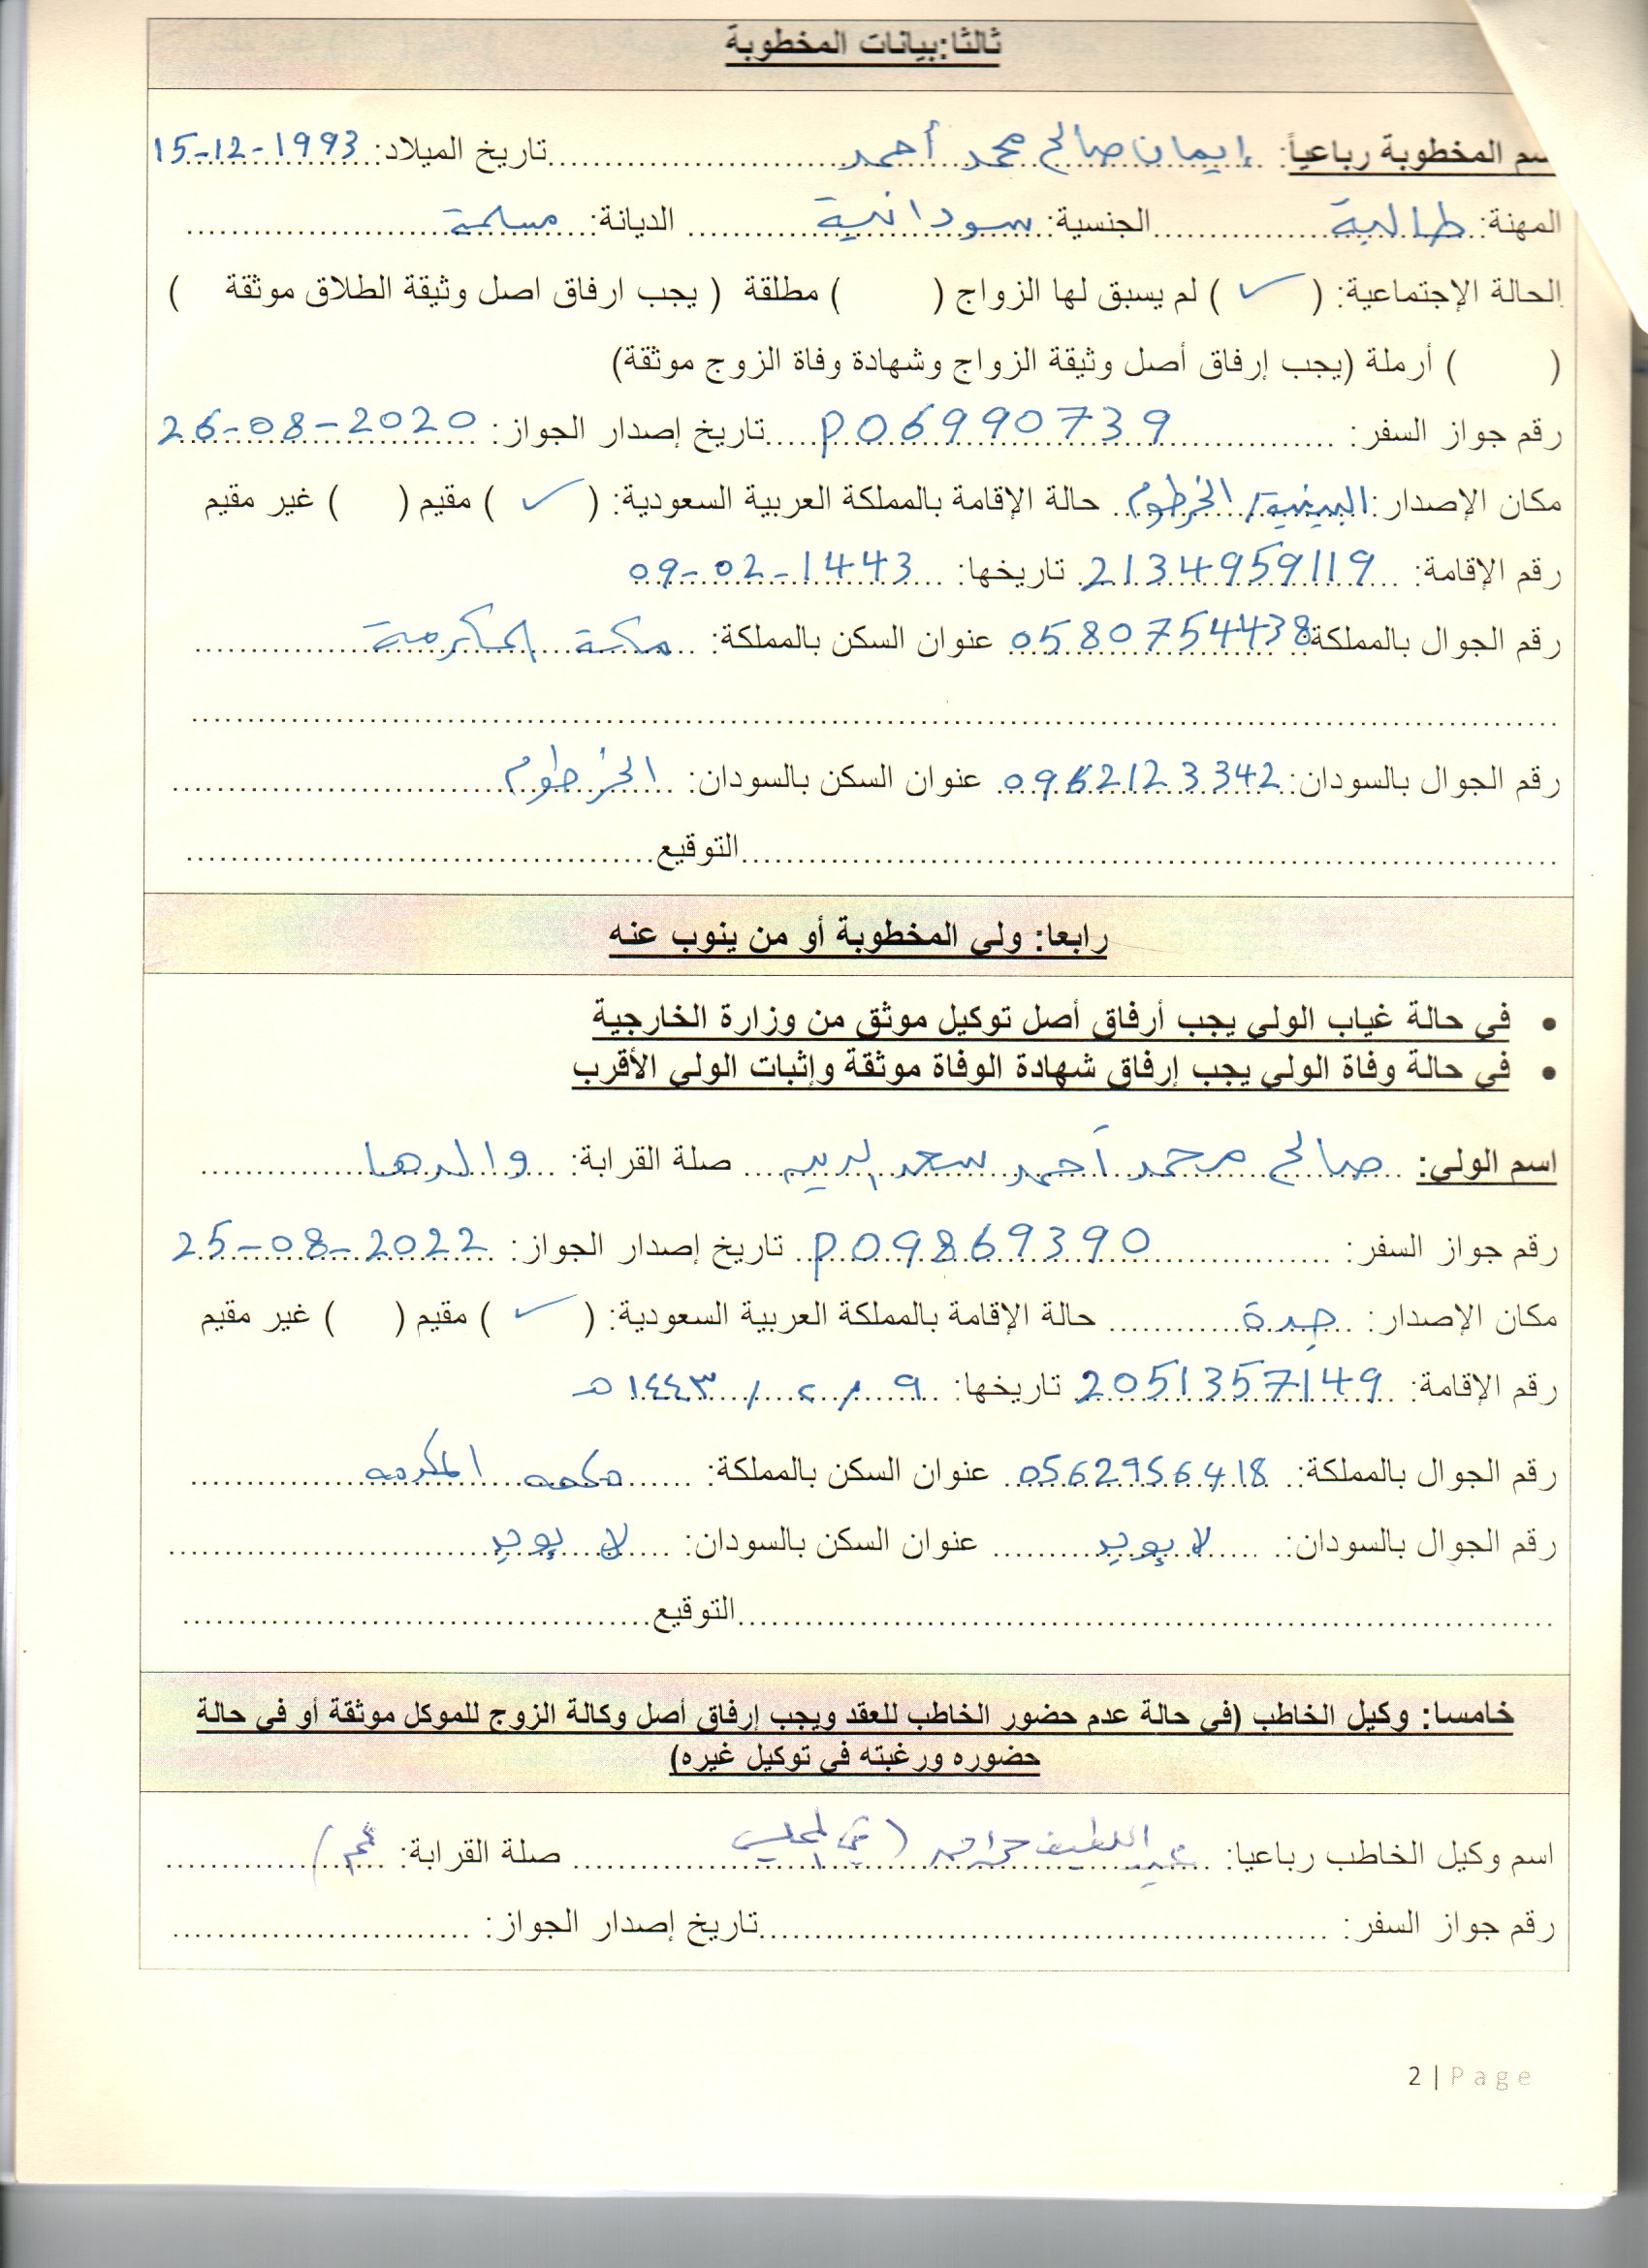 ثالثا: بيانات المخطوبة
سم المخطوبة رباعياً: إيمان صالح محمد أحمد تاريخ الميلاد: 15-12-1993
المهنة: طالبة الجنسية: سودانية الديانة: مسلمة
الحالة الإجتماعية: ( ✓ ) لم يسبق لها الزواج ( ) مطلقة ( يجب ارفاق اصل وثيقة الطلاق موثقة )
( ) أرملة (يجب إرفاق أصل وثيقة الزواج وشهادة وفاة الزوج موثقة)
رقم جواز السفر: P06990739 تاريخ إصدار الجواز: 26-08-2020
مكان الإصدار: / الخرطوم حالة الإقامة بالمملكة العربية السعودية: ( ✓ ) مقيم ( ) غير مقيم
رقم الإقامة: 2134959119 تاريخها: 09-02-1443
رقم الجوال بالمملكة: 0580754438 عنوان السكن بالمملكة: مكة المكرمة
رقم الجوال بالسودان: 0962123342 عنوان السكن بالسودان: الخرطوم
التوقيع
رابعا: ولي المخطوبة أو من ينوب عنه
• في حالة غياب الولي يجب أرفاق أصل توكيل موثق من وزارة الخارجية
• في حالة وفاة الولي يجب إرفاق شهادة الوفاة موثقة وإثبات الولي الأقرب
اسم الولي: صالح محمد أحمد سعد صلة القرابة: والدها
رقم جواز السفر: P09869390 تاريخ إصدار الجواز: 25-08-2022
مكان الإصدار: جدة حالة الإقامة بالمملكة العربية السعودية: ( ✓ ) مقيم ( ) غير مقيم
رقم الإقامة: 2051357149 تاريخها: ٩ / ٢ / ١٤٤٣ هـ
رقم الجوال بالمملكة: 0562956418 عنوان السكن بالمملكة: مكه المكرمه
رقم الجوال بالسودان: لا يوجد عنوان السكن بالسودان: لا يوجد
التوقيع
خامسا: وكيل الخاطب (في حالة عدم حضور الخاطب للعقد ويجب إرفاق أصل وكالة الزوج للموكل موثقة أو في حالة
حضوره ورغبته في توكيل غيره)
اسم وكيل الخاطب رباعيا: عبد اللطيف (في المجلس صلة القرابة: عم)
رقم جواز السفر: تاريخ إصدار الجواز:
2 | Page